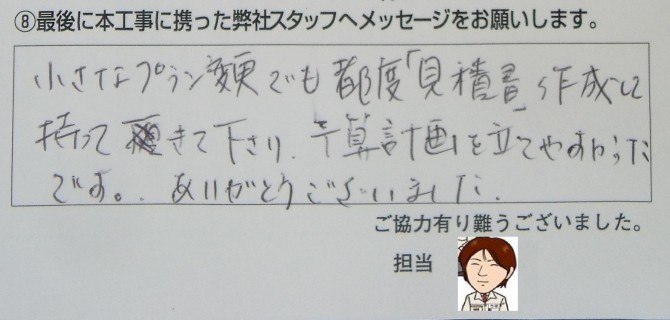 ⑧最後に本工事に携った弊社スタッフへメッセージをお願いします。
小さなプラン変更でも都度「見積書」作成して
持って きて下さり、予算計画を立てやすかった
です。. ありがとうございました.
ご協力有り難うございました。
担当